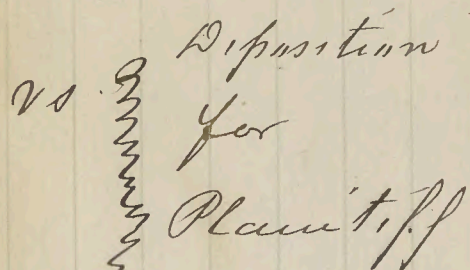 Deposition
vs
for
Plaintiff